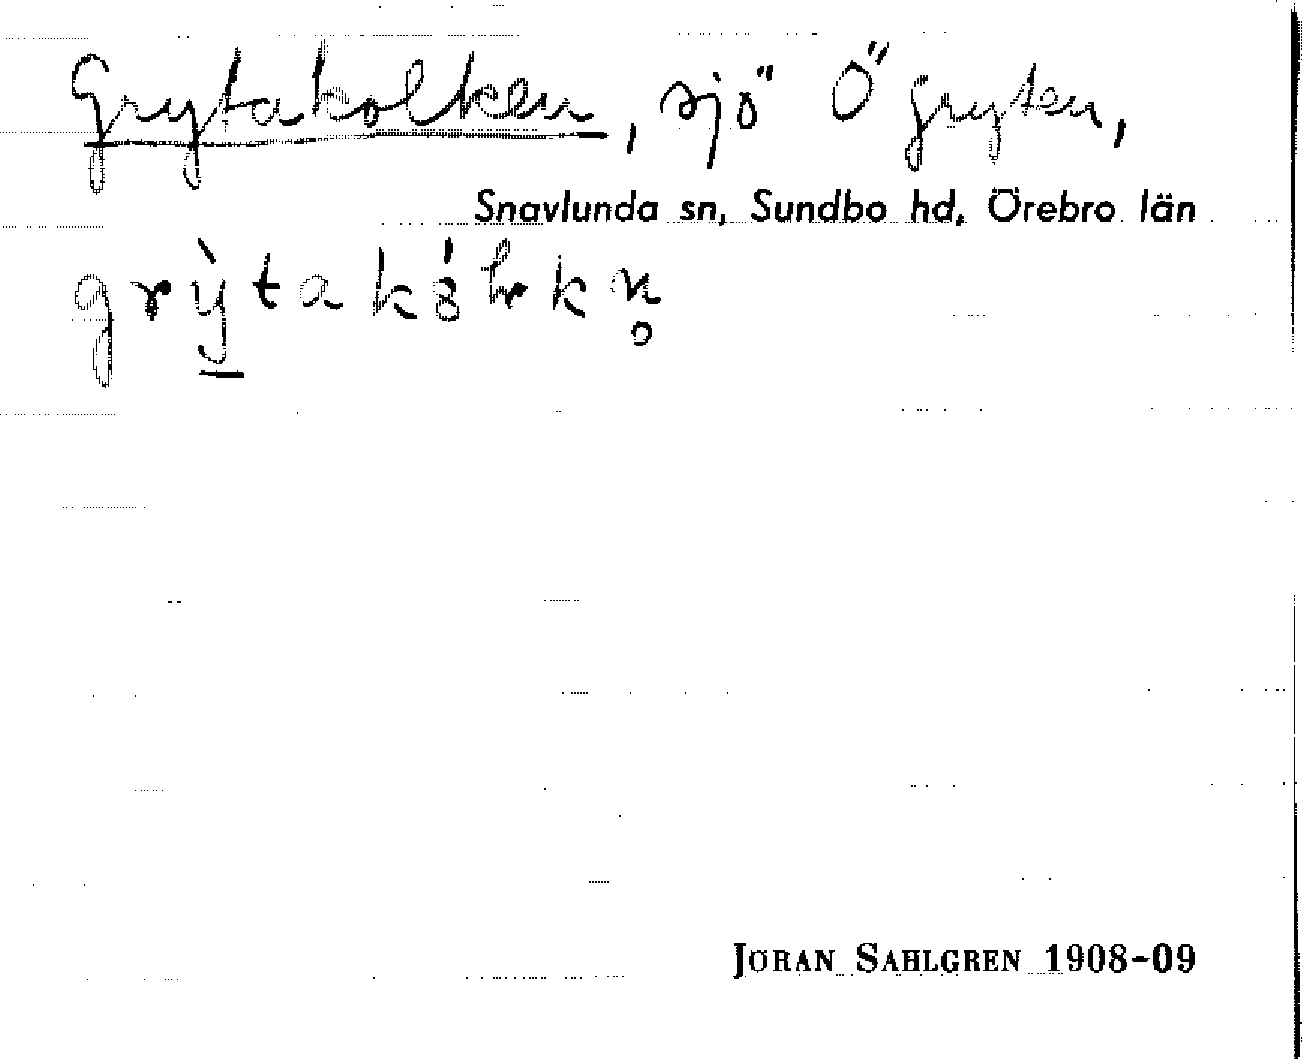 Grytakolken, sjö Ö Gryten,
Snavlunda sn, Sundbo hd, Örebro län
JÖRAN SAHLGREN 1908-09